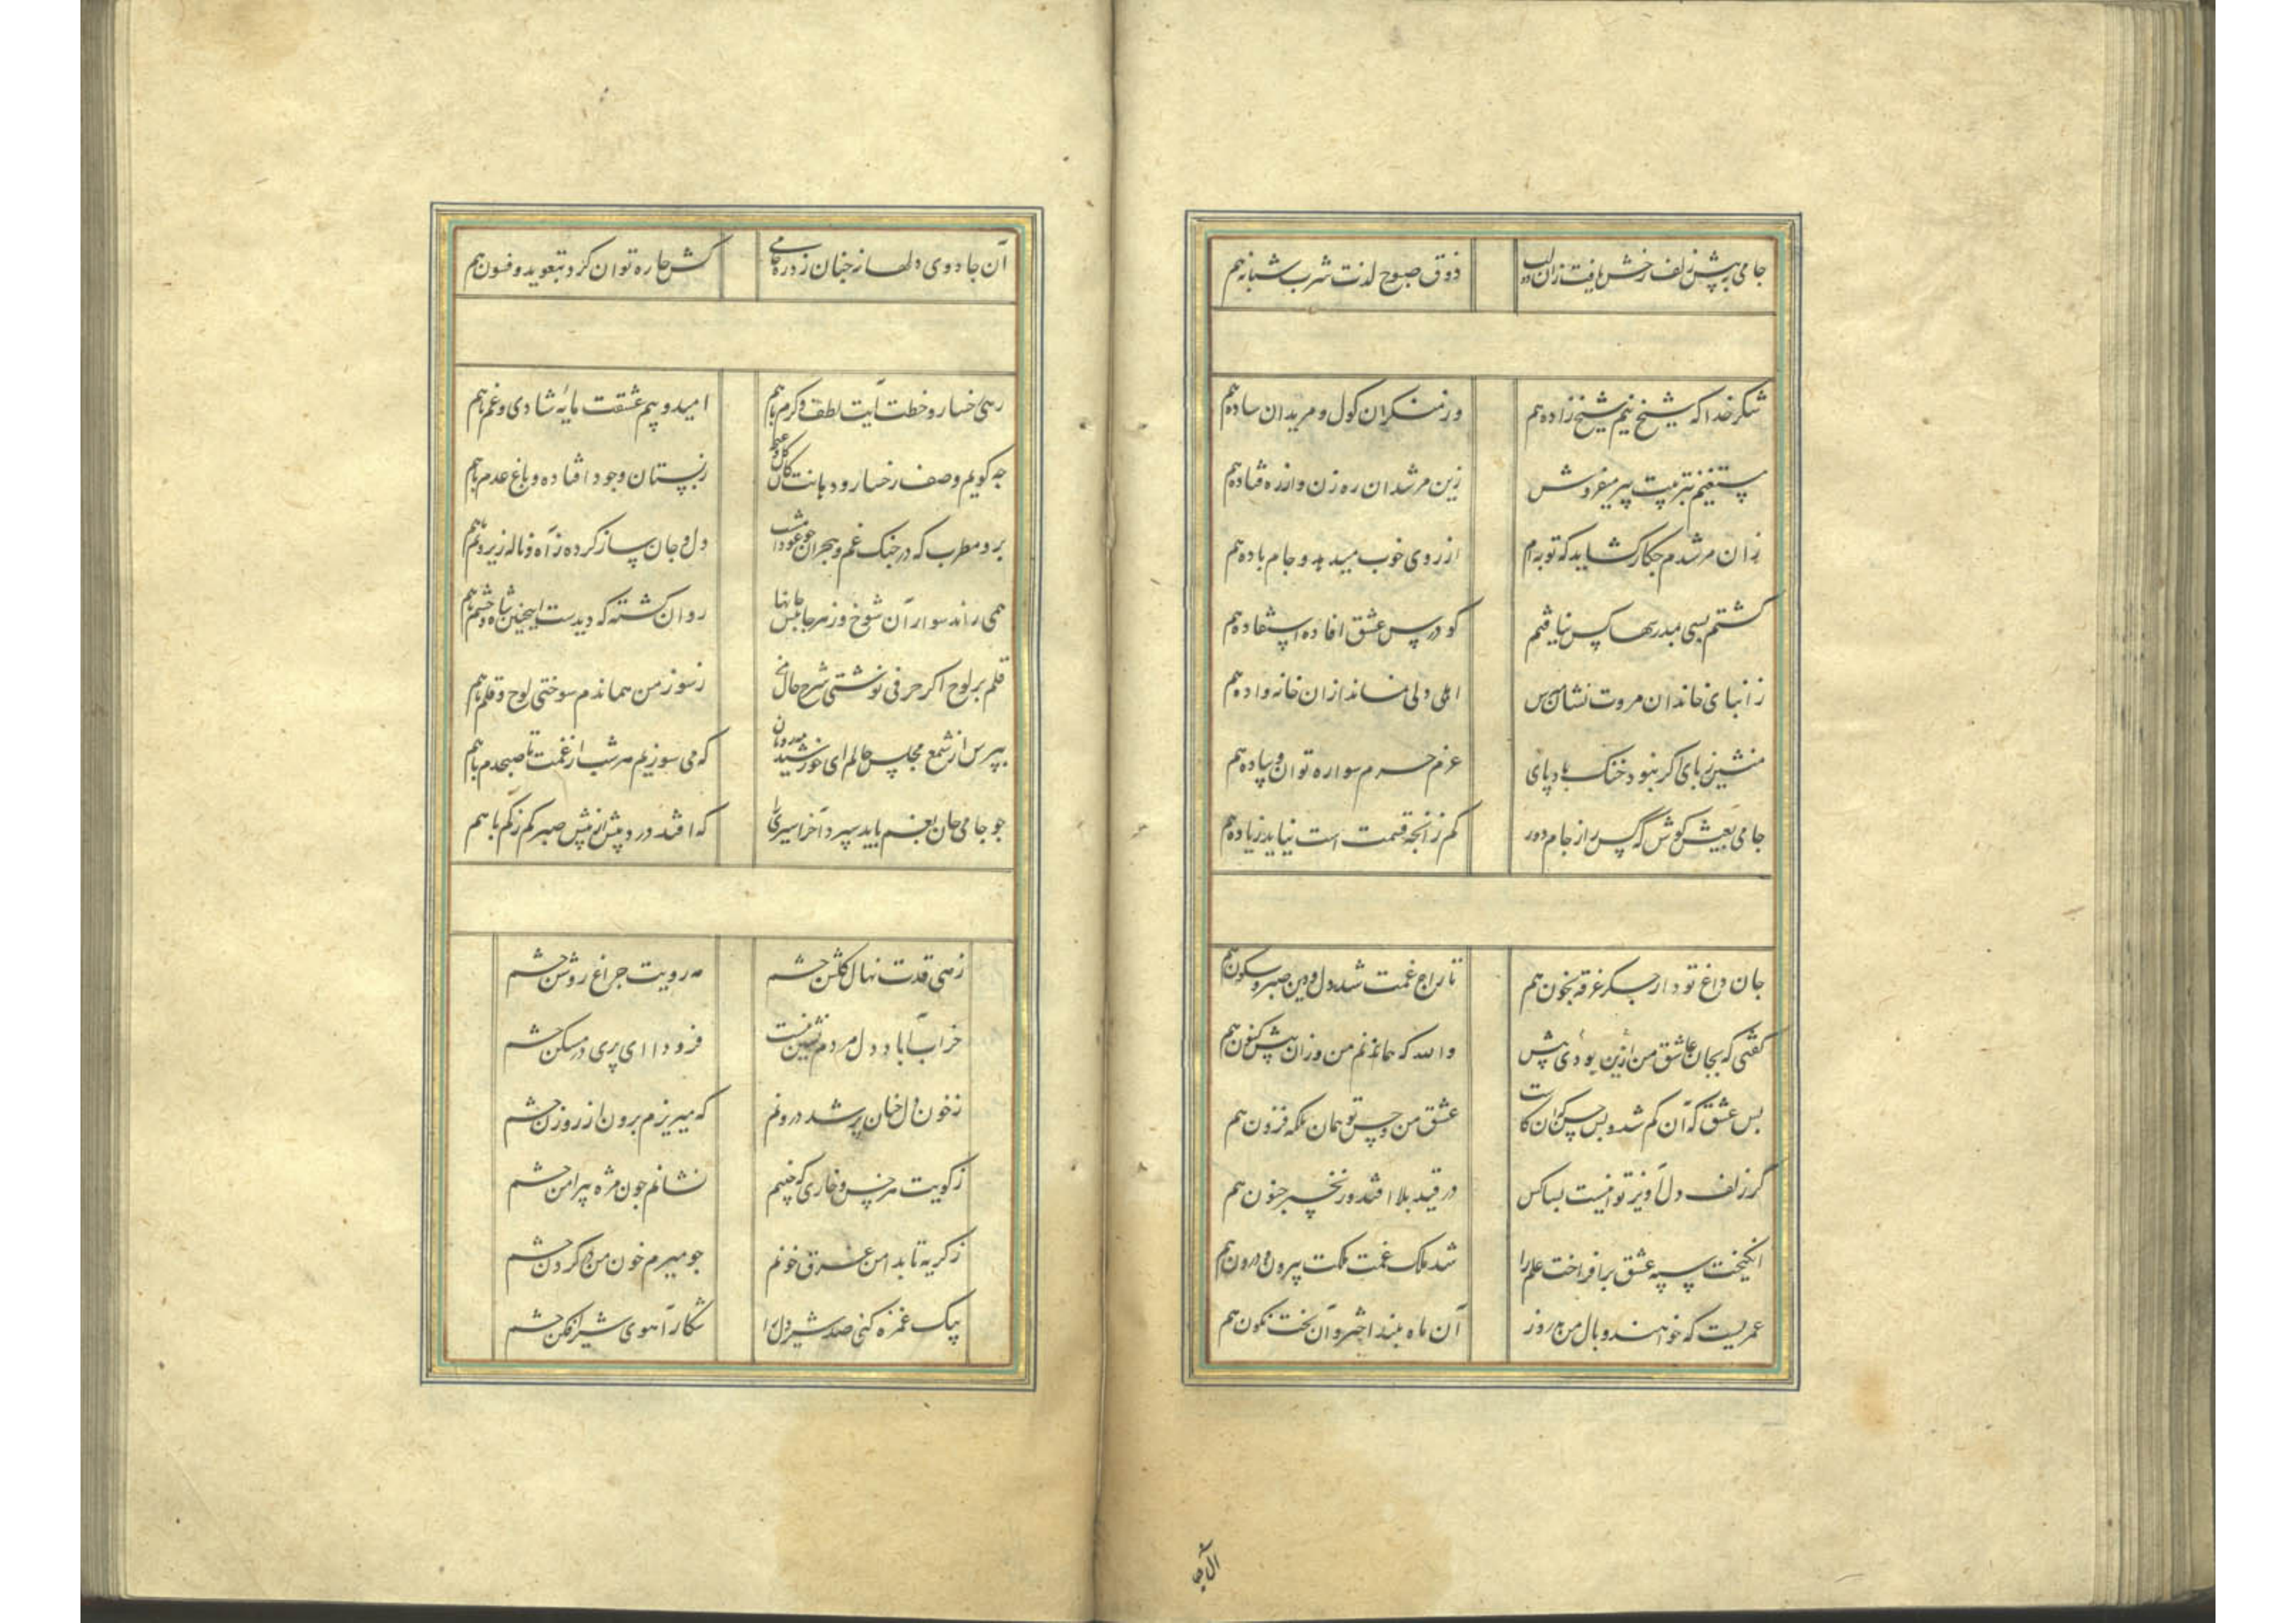 جامی به پیش زلف و رخش یافت زان دو لب
ذوق صبوح لذت شرب شبانه هم
شکر خدا که شیخ نیم شیخ زاده هم
وز منکران کول و مریدان ساده هم
مستغنیم بتربیت پیر میفروش
زین مرشدان ره زن و از ره فتاده هم
زان مرشدم چکار کشاید که توبه ام
از روی خوب میدهد و جام باده هم
کشتم بسی بمدرسها کس نیافتم
کو درس عشق افاده استفاده هم
ز ابنای خاندان مروت نشان مپرس
اهل دلی نماند ازان خانواده هم
منشین ز پای اکر نبود خنک بادپای
عزم حرم سواره توان و پیاده هم
جامی بعیش کوش که پس از جام دور
کم زآنچه قسمت است نیاید زیاده هم
جان داغ تو دارد جکر غرقه بخون هم
تاراج غمت شد دل و دین صبر و سکون هم
کفتی که بجان عاشق من ازین بودی پیش
والله که همانم من و زان پیش کنون هم
بس عشق که آن کم شد و بس حسن که آن کاست
عشق من و حسن تو همان بلکه فزون هم
کر زلف دل آویز تو اینست بسا کس
در قید بلا افتد و زنجیر جنون هم
انکیخت سپه عشق برافراخت علم را
شد ملک غمت مملکت بیرون و درون هم
عمریست که خواهند وبال من بد روز
آن ماه بلند اختر و آن بخت نکون هم
آن جا
آن جادوی دلها ز چنان زد ره جامی
کش چاره توان کرد بتعوید و فسون هم
زهی رخسار و خطت آیت لطف و کرم با هم
امید و بیم عشقت مایهٔ شادی و غم با هم
چه کویم وصف رخسار و دهانت کان کل و غنچه
ز بستان وجود افتاده و باغ عدم با هم
برو مطرب که در جنک غم و هجران چو عود امشب
دل و جان ساز کرده ز آه و ناله زیر و بم با هم
همی راند سوار آن شوخ و ز هر جانبش جانها
روان کشته که دیدست اینچنین شاه و حشم با هم
قلم بر لوح اکر حرفی نوشتی شرح حال من
ز سوز من هماندم سوختی لوح و قلم با هم
بپرس از شمع مجلس حالم ای خورشید مه رویان
که می سوزیم هر شب از غمت تا صبحدم با هم
چو جامی جان بغم باید سپرد آخر اسیری را
که افتد درد بیش از بیش صبر کم ز کم با هم
زهی قدت نهال کلشن چشم
مه رویت چراغ روشن چشم
خراب آباد دل مردم نشین نیست
فرود اای پری در مسکن چشم
ز خون دل چنان پر شد درونم
که میریزم برون از روزن چشم
ز کویت هر خس و خاری که چینم
نشانم چون مژه پیرامن چشم
ز کریه تا بدامن غرق خونم
چو میرم خون من در کردن چشم
بیک غمزه کنی صد شیر دل را
شکار آهوی شیرافکن چشم